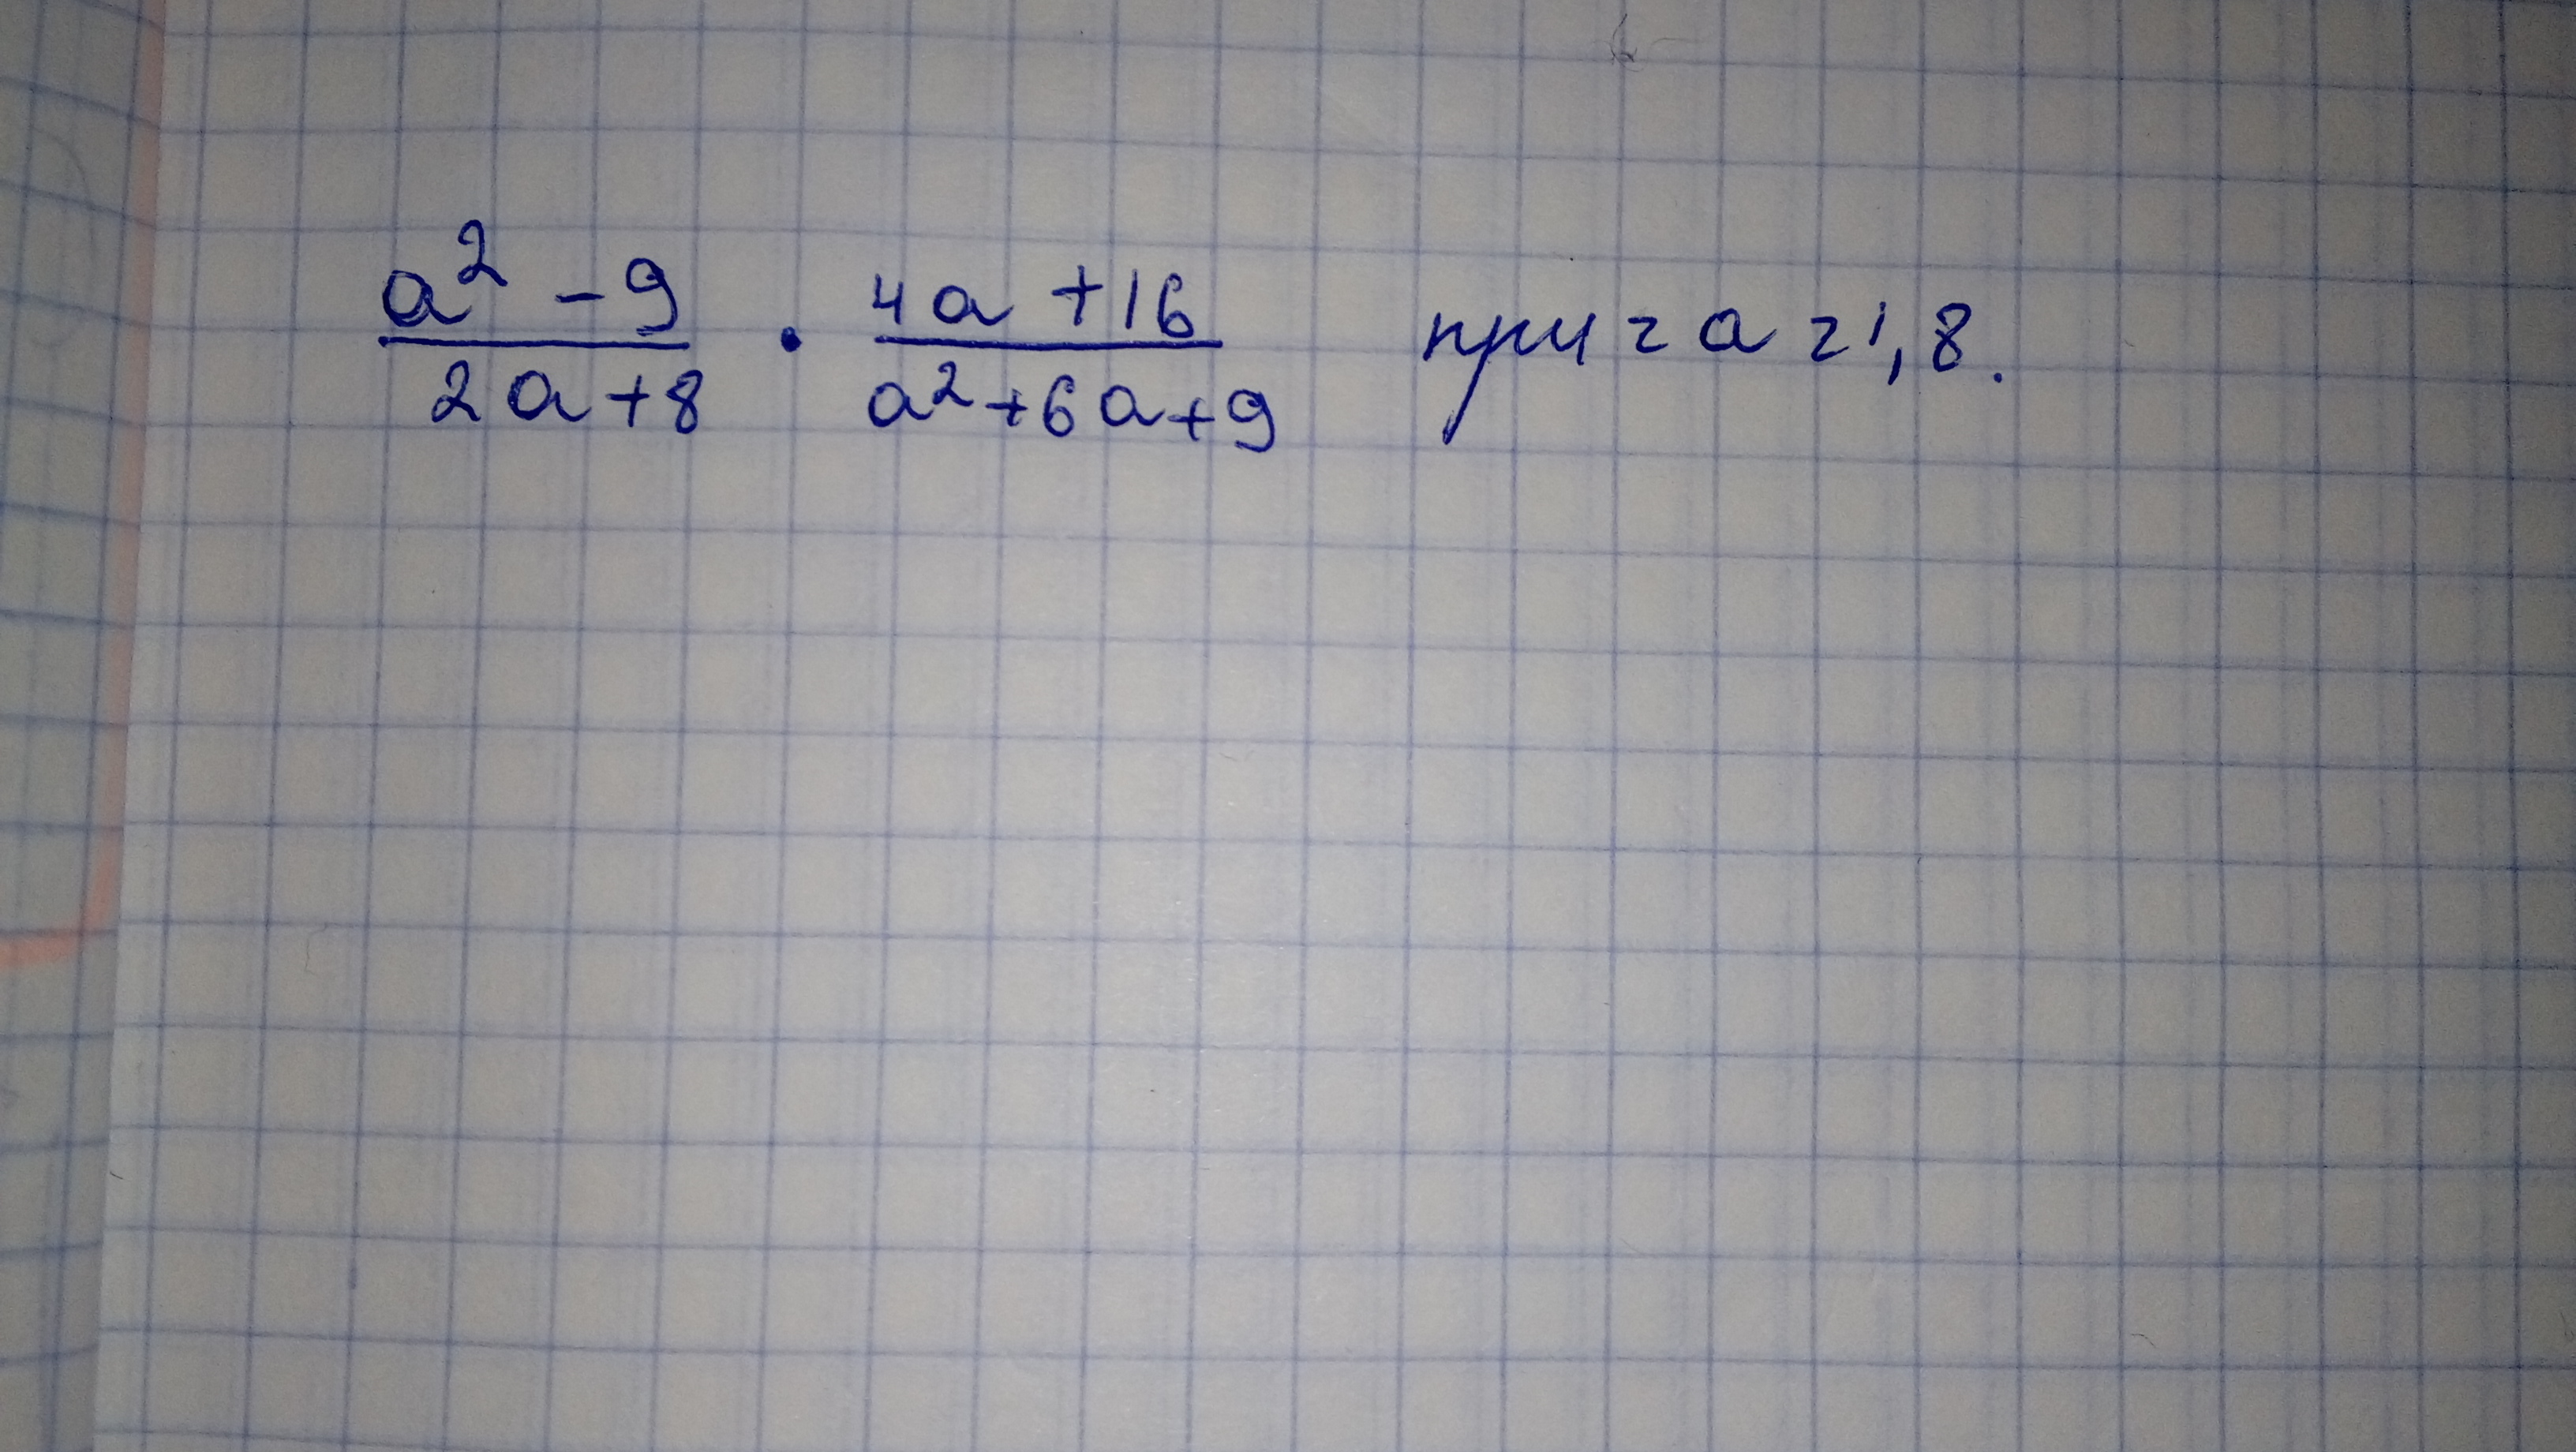 a² - 9 / 2a + 8 · 4a + 16 / a² + 6a + 9 при = a = 1,8.